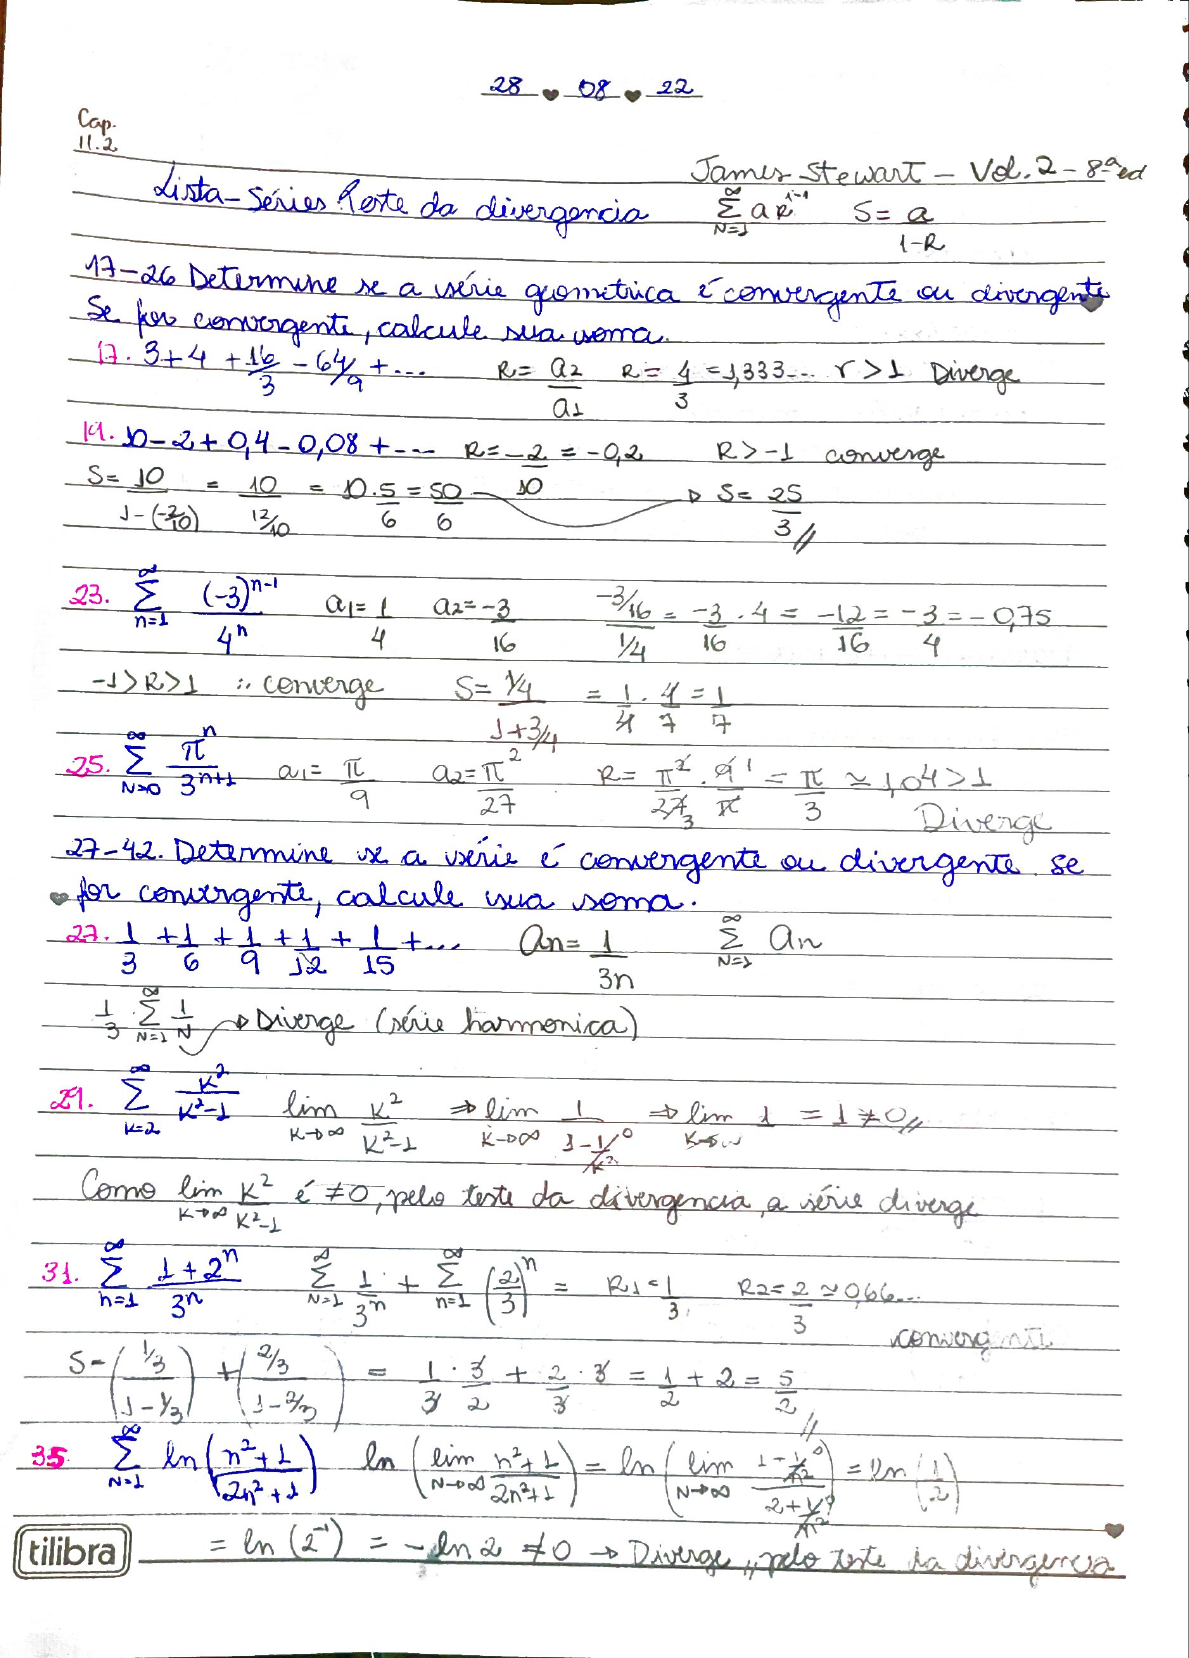 28 08 22
Cap.
11.2
James Stewart – Vol. 2 – 8ª ed
Lista – Séries Teste da divergencia ∞ Σ N=1 aR^(i-1) S = a/(1-R)
17-26 Determine se a série geometrica é convergente ou divergente
Se for convergente, calcule sua soma.
17. 3+4+16/3 - 64/9 + ... R = a2/a1 R = 4/3 = 1,333... r > 1 Diverge
19. 10-2+0,4-0,08+... R = -2/10 = -0,2 R > -1 converge
S = 10/(1-(-2/10)) = 10/(12/10) = 10.5/6 = 50/6 → S = 25/3 //
23. ∞ Σ n=1 (-3)^(n-1)/4^n a1 = 1/4 a2 = -3/16 (-3/16)/(1/4) = -3/16 . 4 = -12/16 = -3/4 = -0,75
-1>R>1 ∴ converge S = (1/4)/(1+3/4) = 1/4 . 4/7 = 1/7
25. ∞ Σ N=0 π^n/3^(n+1) a1 = π/9 a2 = π²/27 R = π²/27 . 9/π = π/3 ≃ 1,04 > 1
Diverge
27-42. Determine se a série é convergente ou divergente. Se
for convergente, calcule sua soma.
27. 1/3 + 1/6 + 1/9 + 1/12 + 1/15 + ... an = 1/3n ∞ Σ N=1 an
1/3 ∞ Σ N=1 1/N → Diverge (série harmonica)
29. ∞ Σ k=2 k²/(k²-1) lim k→∞ k²/(k²-1) ⇒ lim k→∞ 1/(1-1/k²) ⇒ lim k→∞ 1 = 1 ≠ 0 //
Como lim k→∞ k²/(k²-1) é ≠ 0, pelo teste da divergencia, a série diverge
31. ∞ Σ n=1 (1+2^n)/3^n ∞ Σ N=1 1/3^n + ∞ Σ n=1 (2/3)^n = R1 = 1/3 R2 = 2/3 ≃ 0,66...
convergente
S = ((1/3)/(1-1/3)) + ((2/3)/(1-2/3)) = 1/3 . 3/2 + 2/3 . 3 = 1/2 + 2 = 5/2 //
35. ∞ Σ N=1 ln((n²+1)/(2n²+1)) ln(lim N→∞ (n²+1)/(2n²+1)) = ln(lim N→∞ (1+1/n²)/(2+1/n²)) = ln(1/2)
= ln(2^-1) = -ln 2 ≠ 0 → Diverge, pelo teste da divergencia
tilibra